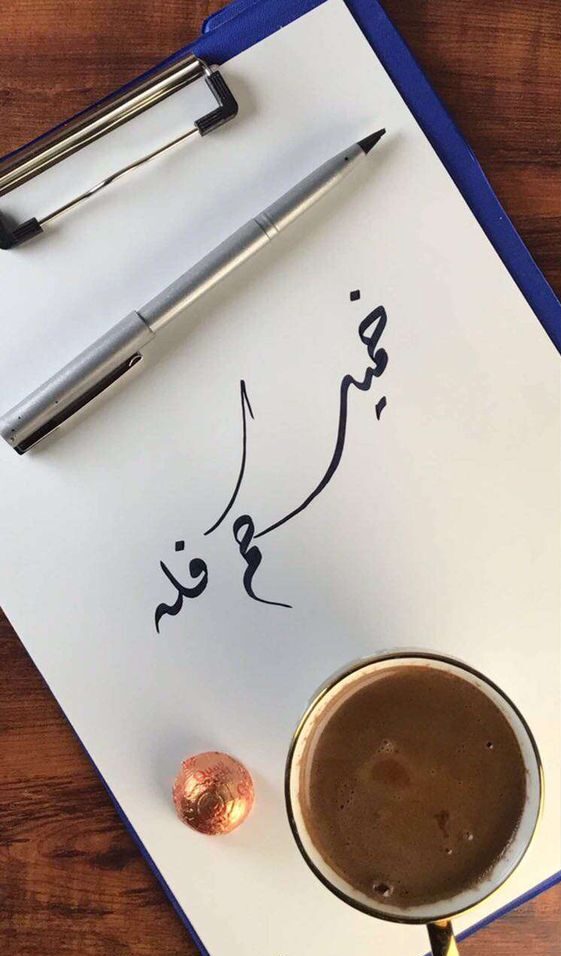 خميسكم فله